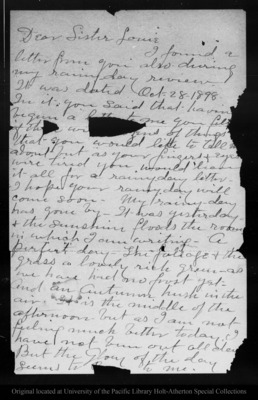 Dear Sister Louie
I found a
letter from you also during
my rainy day review
It was dated Oct. 28. 1898
In it, you said that having
begun a letter to me you felt
of the ends of things
that you would like to tell me
about but as your fingers & eyes
were tired you would
it all for a rainy day letter.
I hope your rainy day will
come soon. My rainy day
has gone by - It was yesterday -
& the sunshine floods the room
in which I am writing - A
perfect day - The foliage & the
grass a lovely rich green - as
we have had no frost yet.
And an Autumn hush in the
air. It is the middle of the
afternoon but as I am not
feeling much better today I
have not been out all day
But the glory of the day
seems to me.
Original located at University of the Pacific Library Holt-Atherton Special Collections